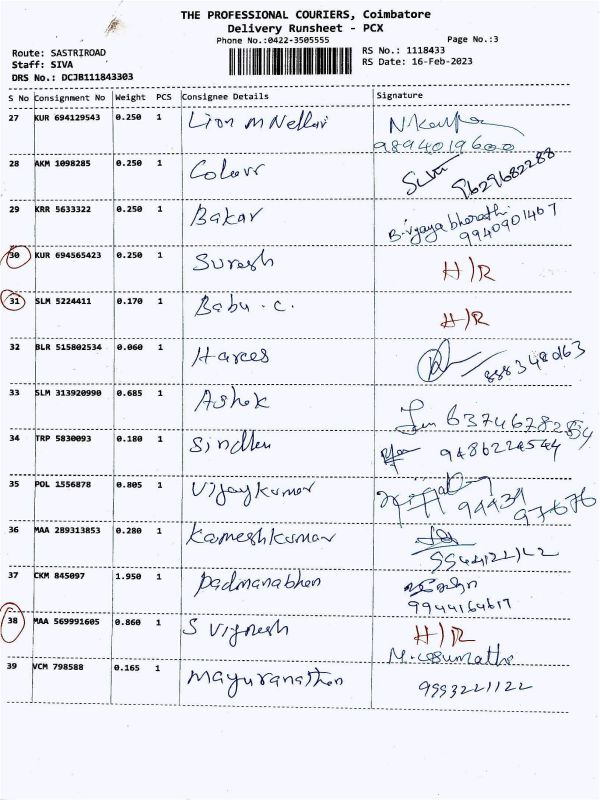 THE PROFESSIONAL COURIERS, Coimbatore
Delivery Runsheet - PCX
Phone No.:0422-3505555 Page No.:3
Route: SASTRIROAD RS No.: 1118433
Staff: SIVA RS Date: 16-Feb-2023
DRS No.: DCJB111843303
S No Consignment No Weight PCS Consignee Details Signature
27 KUR 694129543 0.250 1 Lion M Nellai
9894019600
28 AKM 1098285 0.250 1 Colour Siva 9629682288
29 KRR 5633322 0.250 1 Bakar B. vijaya bharathi
9940901407
30 KUR 694565423 0.250 1 Suresh H/R
31 SLM 5224411 0.170 1 Babu . C. H/R
32 BLR 515802534 0.060 1 Harees
33 SLM 313920990 0.685 1 Ashok
34 TRP 5830093 0.180 1 Sindhu 9486224544
35 POL 1556878 0.805 1 Vijaykumar 94434
97676
36 MAA 289313853 0.280 1 Kameshkumar
37 CKM 845097 1.950 1 Padmanabhan
9944164617
38 MAA 569991605 0.860 1 S Vignesh H/R
39 VCM 798588 0.165 1 Mayuranathan 9993221122